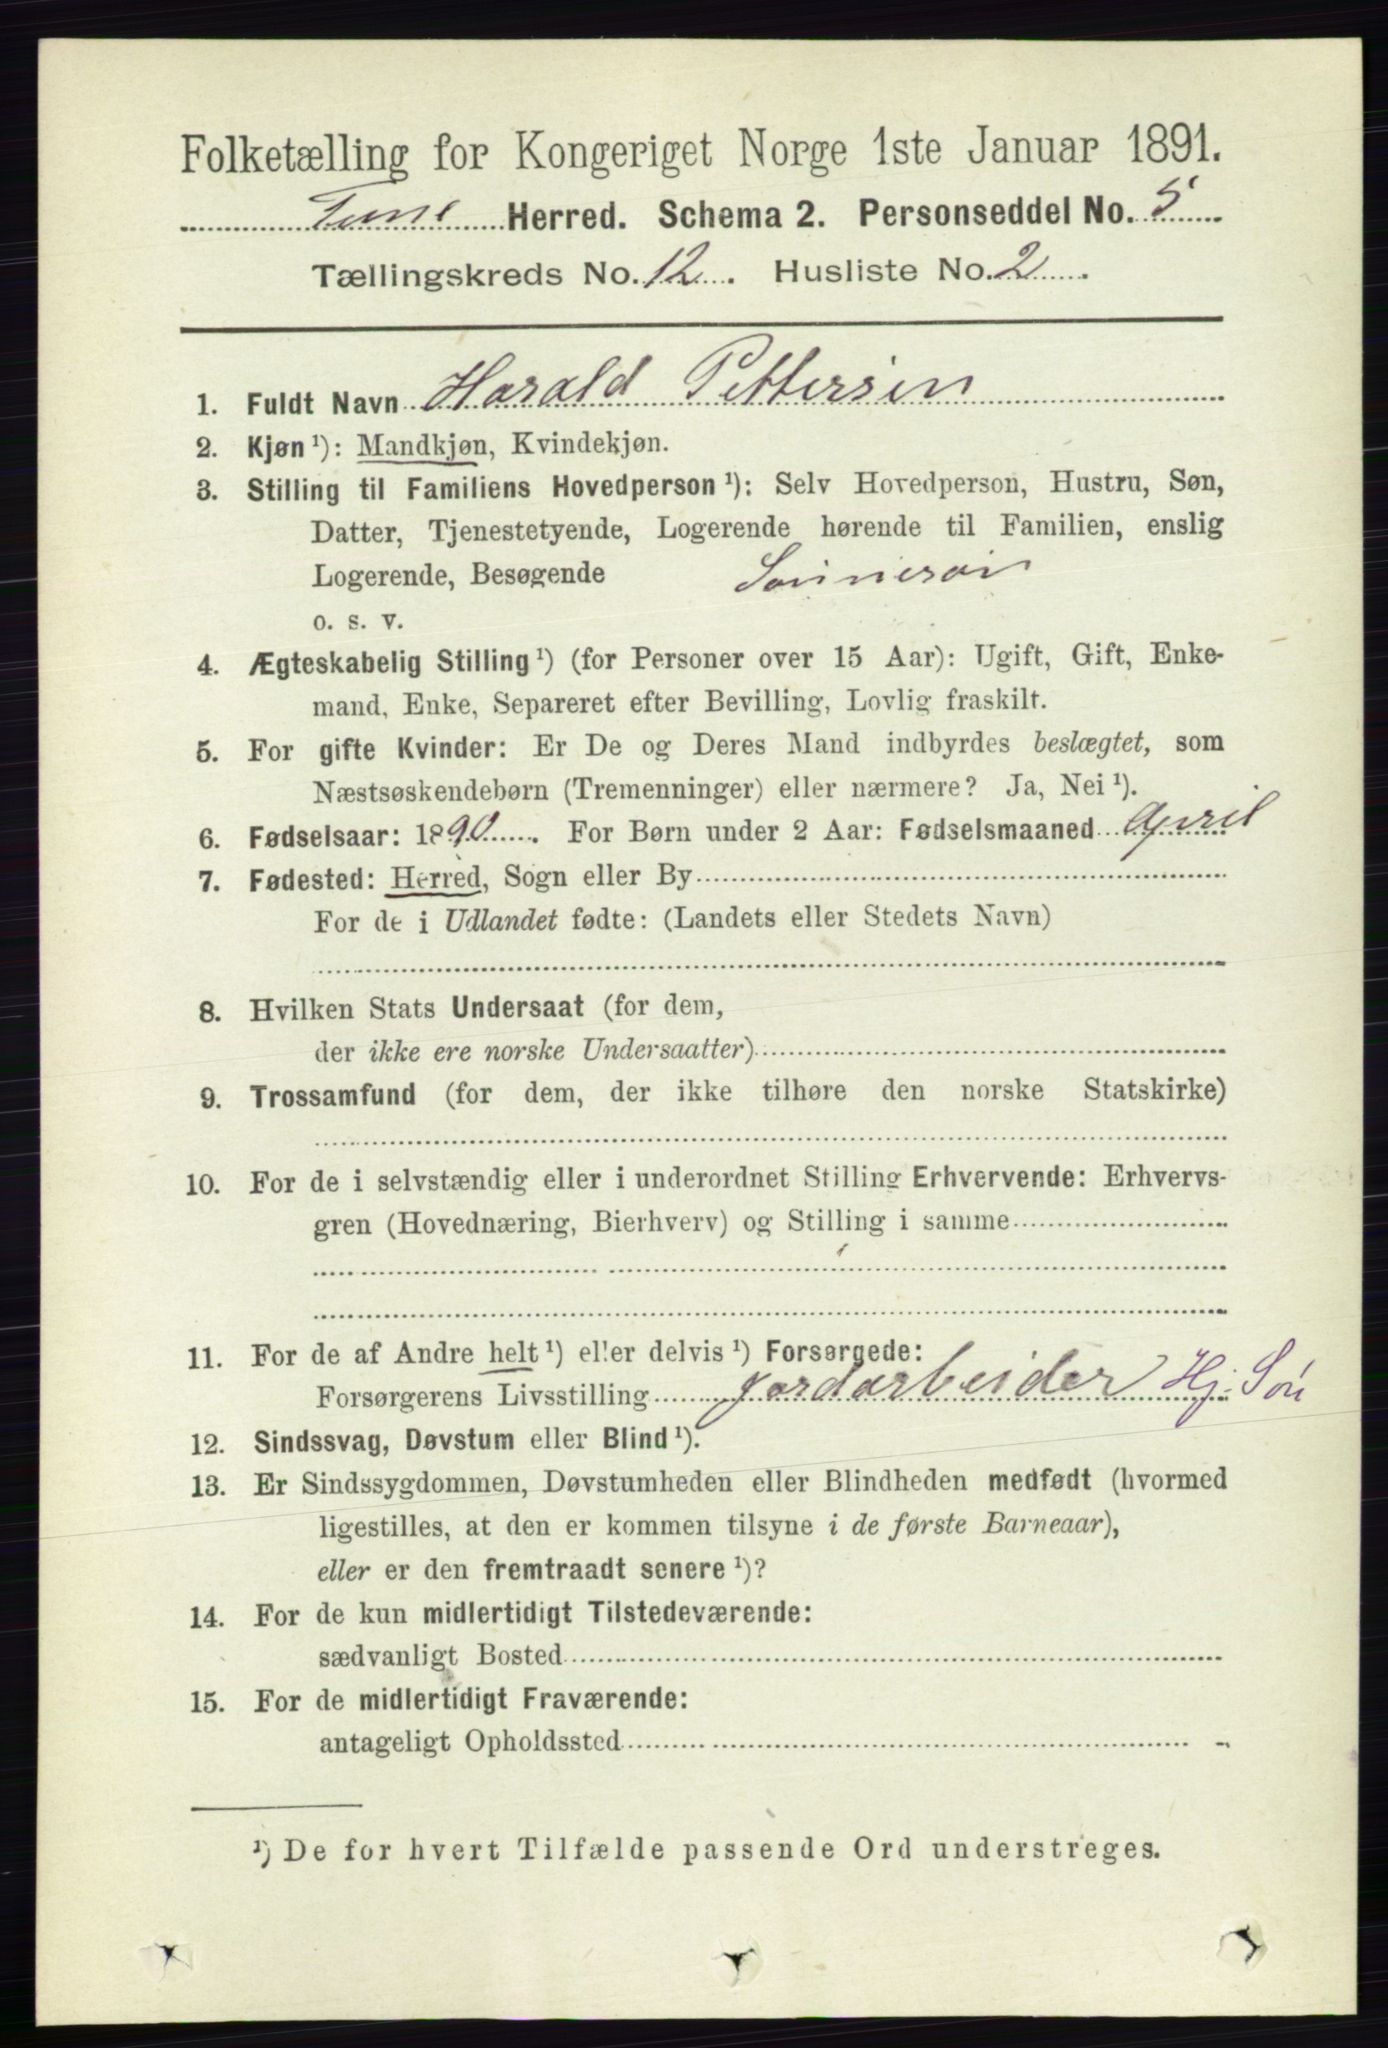 Folketælling for Kongeriget Norge 1ste Januar 1891.
Tune Herred. Schema 2. Personseddel No. 5
Tællingskreds No. 12. Husliste No. 2
1. Fuldt Navn Harald Pettersen
2. Kjøn ¹): Mandkjøn, Kvindekjøn.
3. Stilling til Familiens Hovedperson ¹): Selv Hovedperson, Hustru, Søn,
Datter, Tjenestetyende, Logerende hørende til Familien, enslig
Logerende, Besøgende Sønnesøn
o. s. v.
4. Ægteskabelig Stilling ¹) (for Personer over 15 Aar): Ugift, Gift, Enke-
mand, Enke, Separeret efter Bevilling, Lovlig fraskilt.
5. For gifte Kvinder: Er De og Deres Mand indbyrdes beslægtet, som
Næstsøskendebørn (Tremenninger) eller nærmere? Ja, Nei ¹).
6. Fødselsaar: 1890. For Børn under 2 Aar: Fødselsmaaned April
7. Fødested: Herred, Sogn eller By
For de i Udlandet fødte: (Landets eller Stedets Navn)
8. Hvilken Stats Undersaat (for dem,
der ikke ere norske Undersaatter)
9. Trossamfund (for dem, der ikke tilhøre den norske Statskirke)
10. For de i selvstændig eller i underordnet Stilling Erhvervende: Erhvervs-
gren (Hovednæring, Bierhverv) og Stilling i samme
11. For de af Andre helt ¹) eller delvis ¹) Forsørgede:
Forsørgerens Livsstilling Jordarbeider Hj. Søn
12. Sindssvag, Døvstum eller Blind ¹).
13. Er Sindssygdommen, Døvstumheden eller Blindheden medfødt (hvormed
ligestilles, at den er kommen tilsyne i de første Barneaar),
eller er den fremtraadt senere ¹)?
14. For de kun midlertidigt Tilstedeværende:
sædvanligt Bosted
15. For de midlertidigt Fraværende:
antageligt Opholdssted
¹) De for hvert Tilfælde passende Ord understreges.